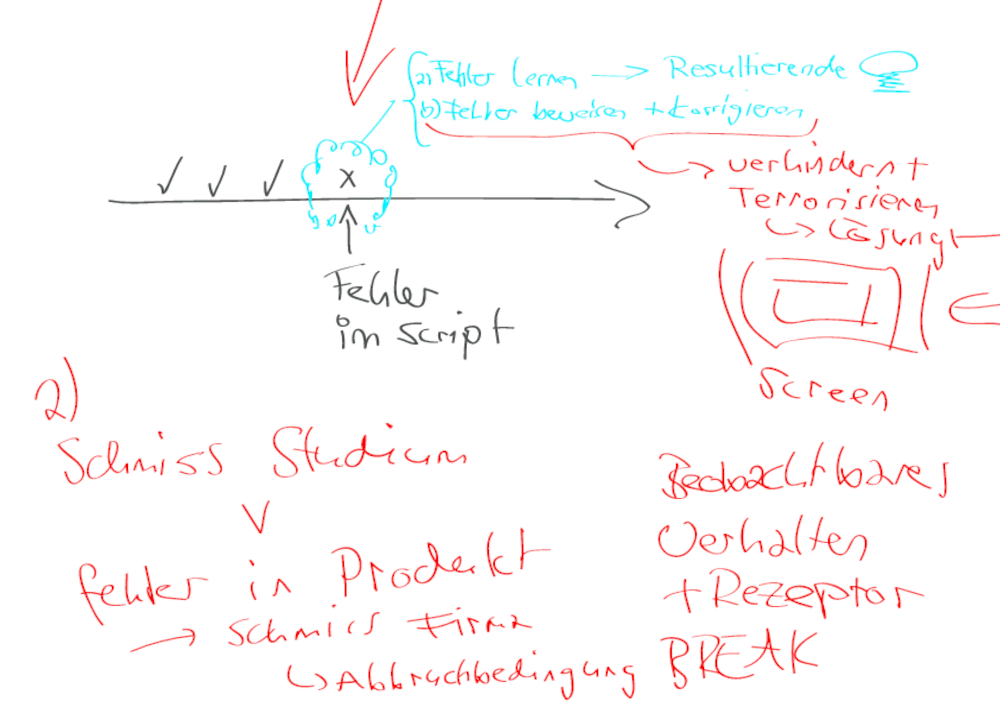 a) Fehler lernen → Resultierende
b) Fehler beweisen + korrigieren
→ verhindern +
Terrorisieren
↳ Lösung
✓ ✓ ✓ x
Fehler
im Script
Screen
2)
Schmiss Studium
v
fehler in Produkt
→ Schmiss Firma
↳ Abbruchbedingung
Beobachtbares
Verhalten
+ Rezeptor
BREAK